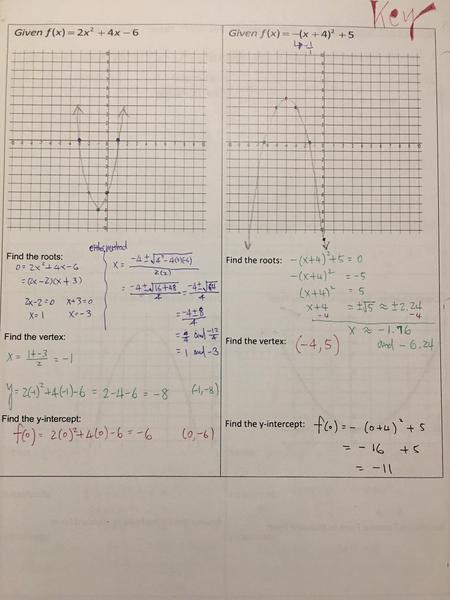 Key
Given f(x) = 2x² + 4x − 6
Given f(x) = −(x + 4)² + 5
Find the roots:
0 = 2x² + 4x − 6
= (2x − 2)(x + 3)
2x − 2 = 0 x + 3 = 0
x = 1 x = −3
either method
x = −4 ± √4² − 4(2)(−6) / 2(2)
= −4 ± √16 + 48 / 4 = −4 ± √64 / 4
= −4 ± 8 / 4
= 4/4 and −12/4
= 1 and −3
Find the vertex:
x = 1 + −3 / 2 = −1
y = 2(−1)² + 4(−1) − 6 = 2 − 4 − 6 = −8 (−1, −8)
Find the y-intercept:
f(0) = 2(0)² + 4(0) − 6 = −6 (0, −6)
Find the roots: −(x + 4)² + 5 = 0
−(x + 4)² = −5
(x + 4)² = 5
x + 4 = ±√5 ≈ ±2.24
−4 −4
x ≈ −1.76
and −6.24
Find the vertex: (−4, 5)
Find the y-intercept: f(0) = −(0 + 4)² + 5
= −16 + 5
= −11